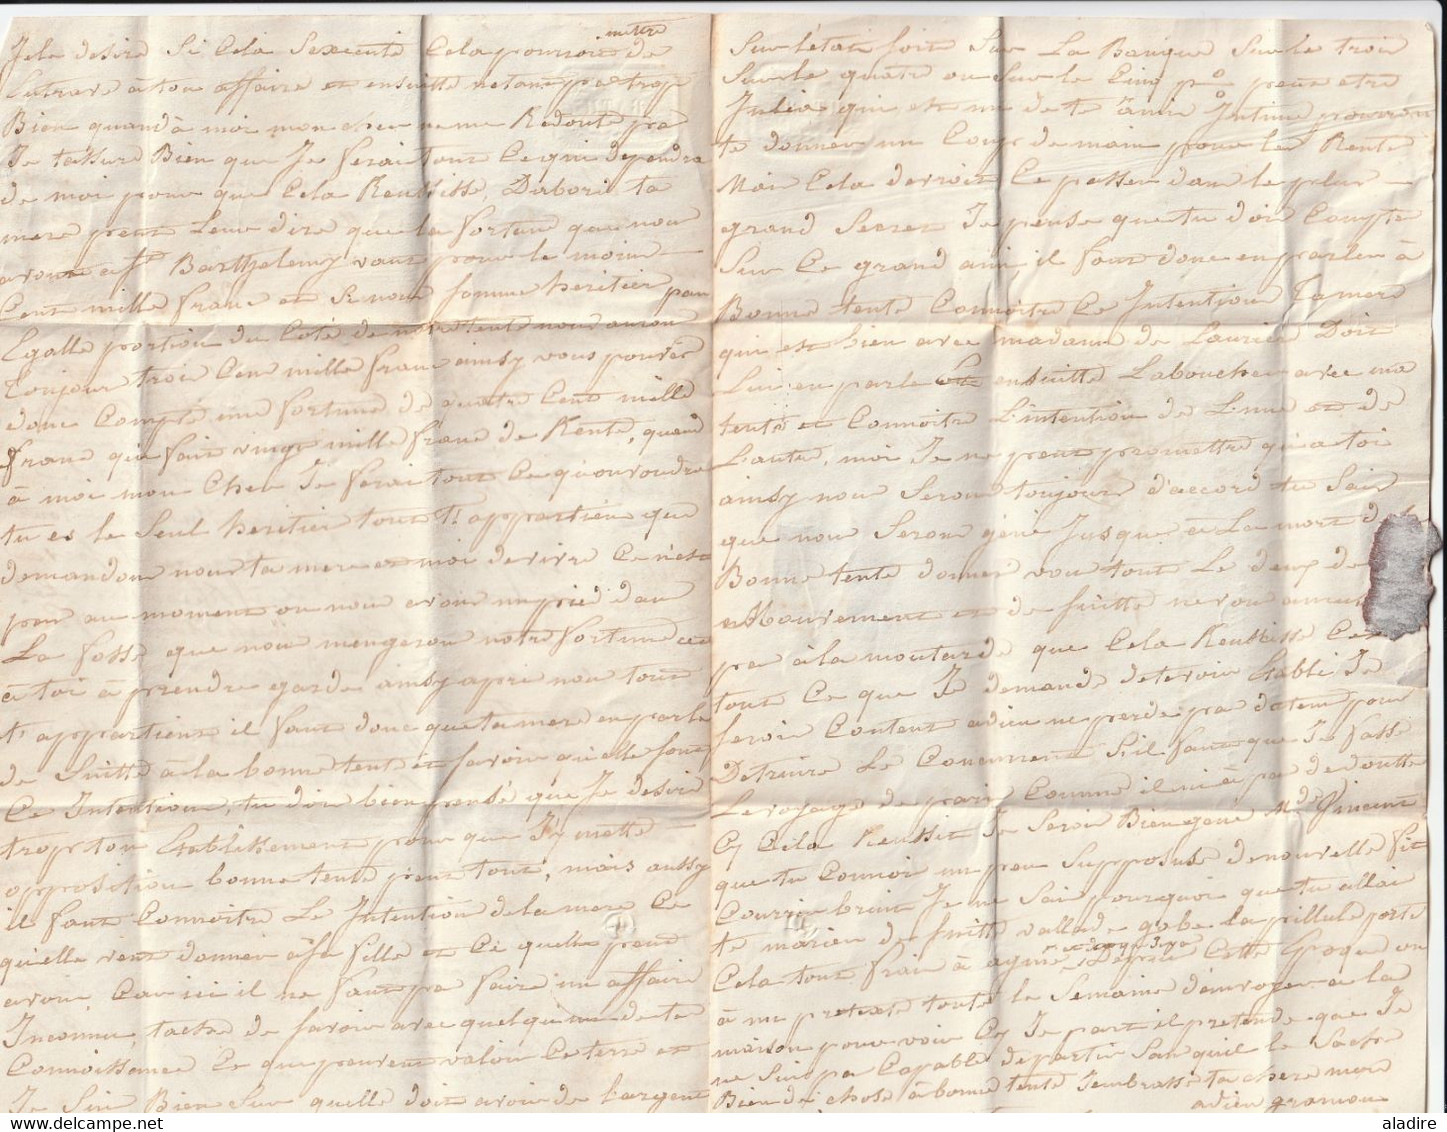 Je le desire Si Cela Sexecute Cela pouroit mettre de
Lentrave à ton affaire et ensuitte netant pas trop
Bien quand à moi mon cher ne me Redout pas
Je tassure Bien que Je ferai tout Ce qui dependra
de moi pour que Cela Reussisse, Dabord ta
mere peut Leur dire que la fortune que nous
avons a St Barthelemy vaut pour le moins
Cent mille franc et Si nous somme heritier par
Egalle portion du Coté de notre tente nous auron
Toujour trois Cent mille franc ainsy vous pouvés
donc Compté une fortune de quatre Cent mille
franc qui fait vingt mille franc de Rente, quand
à moi mon Cher Je ferai tout Ce qu'on voudra
tu es le Seul heritier tout t'appartien que
demandons nous ta mere et moi de vivre Ce n'est
pas au moment ou nous avons un pied dans
La fosse que nous mengerons notre fortune cest
a toi à prendre garde ainsy apré nous tout
t'appartient il faut donc que ta mere en parle
de Suitte à la bonne tente et savoir qu'elle sont
Ce Intention, tu dois bien pensé que Je desire
trop ton Etablissement pour que J'y mette
opposition bonne tente peut tout, mais aussy
il faut Connoitre Le Intention de la mere Ce
qu'elle veut donner à Sa fille et Ce quelle peut
avoir Car ici il ne faut pas faire un affaire
Inconnu, tache de savoir avec quelqu'un de ta
Connoissance Ce que peuvent valoir Ce terre et
Je Suis Bien Sur quelle doit avoir de l'argent
Sur l'état soit Sur La Banque Sur le trois
Sur le quatre ou Sur le Cinq p% peut etre
Julia qui est un de tes amis Intime pourroit
te donner un Coup de main pour les Rente
Mais Cela devroit Ce passer dans le plus
grand Secret Je pense que tu dois Compte
Sur Ce grand ami, il faut donc en parler à
Bonne tente Connoitre Ce Intention Ta mere
qui est bien avec madame de Laurier Doit
Lui en parle ensuitte Laboucher avec ma
tente et Connoitre L'intention de L'une et de
L'autre, moi Je ne peut promettre qu'a toi
ainsy nous Seron toujour d'accord tu Sais
que nous Serons géné Jusque à La mort de
Bonne tente donner vous tout Le deux de
Mouvement et de Suitte ne vous amusé
pas à la moutarde que Cela Reussisse Cest
tout Ce que Je demande de te voir Etabli Je
serois Content adieu ne perde pas de tem pour
Detruire Le Concurrent S'il faut que Je fasse
Le voyage de paris Comme il ni à pas de doutte
Cy Cela Reussit Je Serois Bien gené Mde Vincent
que tu Connoi un peu Supposuse de nouvelle fit
Courrir bruit Je ne Sai pourquoi que tu allai
te marier de Suitte vallade gobe la pillule porte
Cela tout frais à ayme Depuis Cette Epoque on
à un pretexte toute le Semaine d'envoyer a la
maison pour voir Cy Je part il pretende que Je
ne Suis pas Capable de partir Sans quil le Sache
Bien de chose à bonne tente Jembrasse ta chere mere
adieu gramon